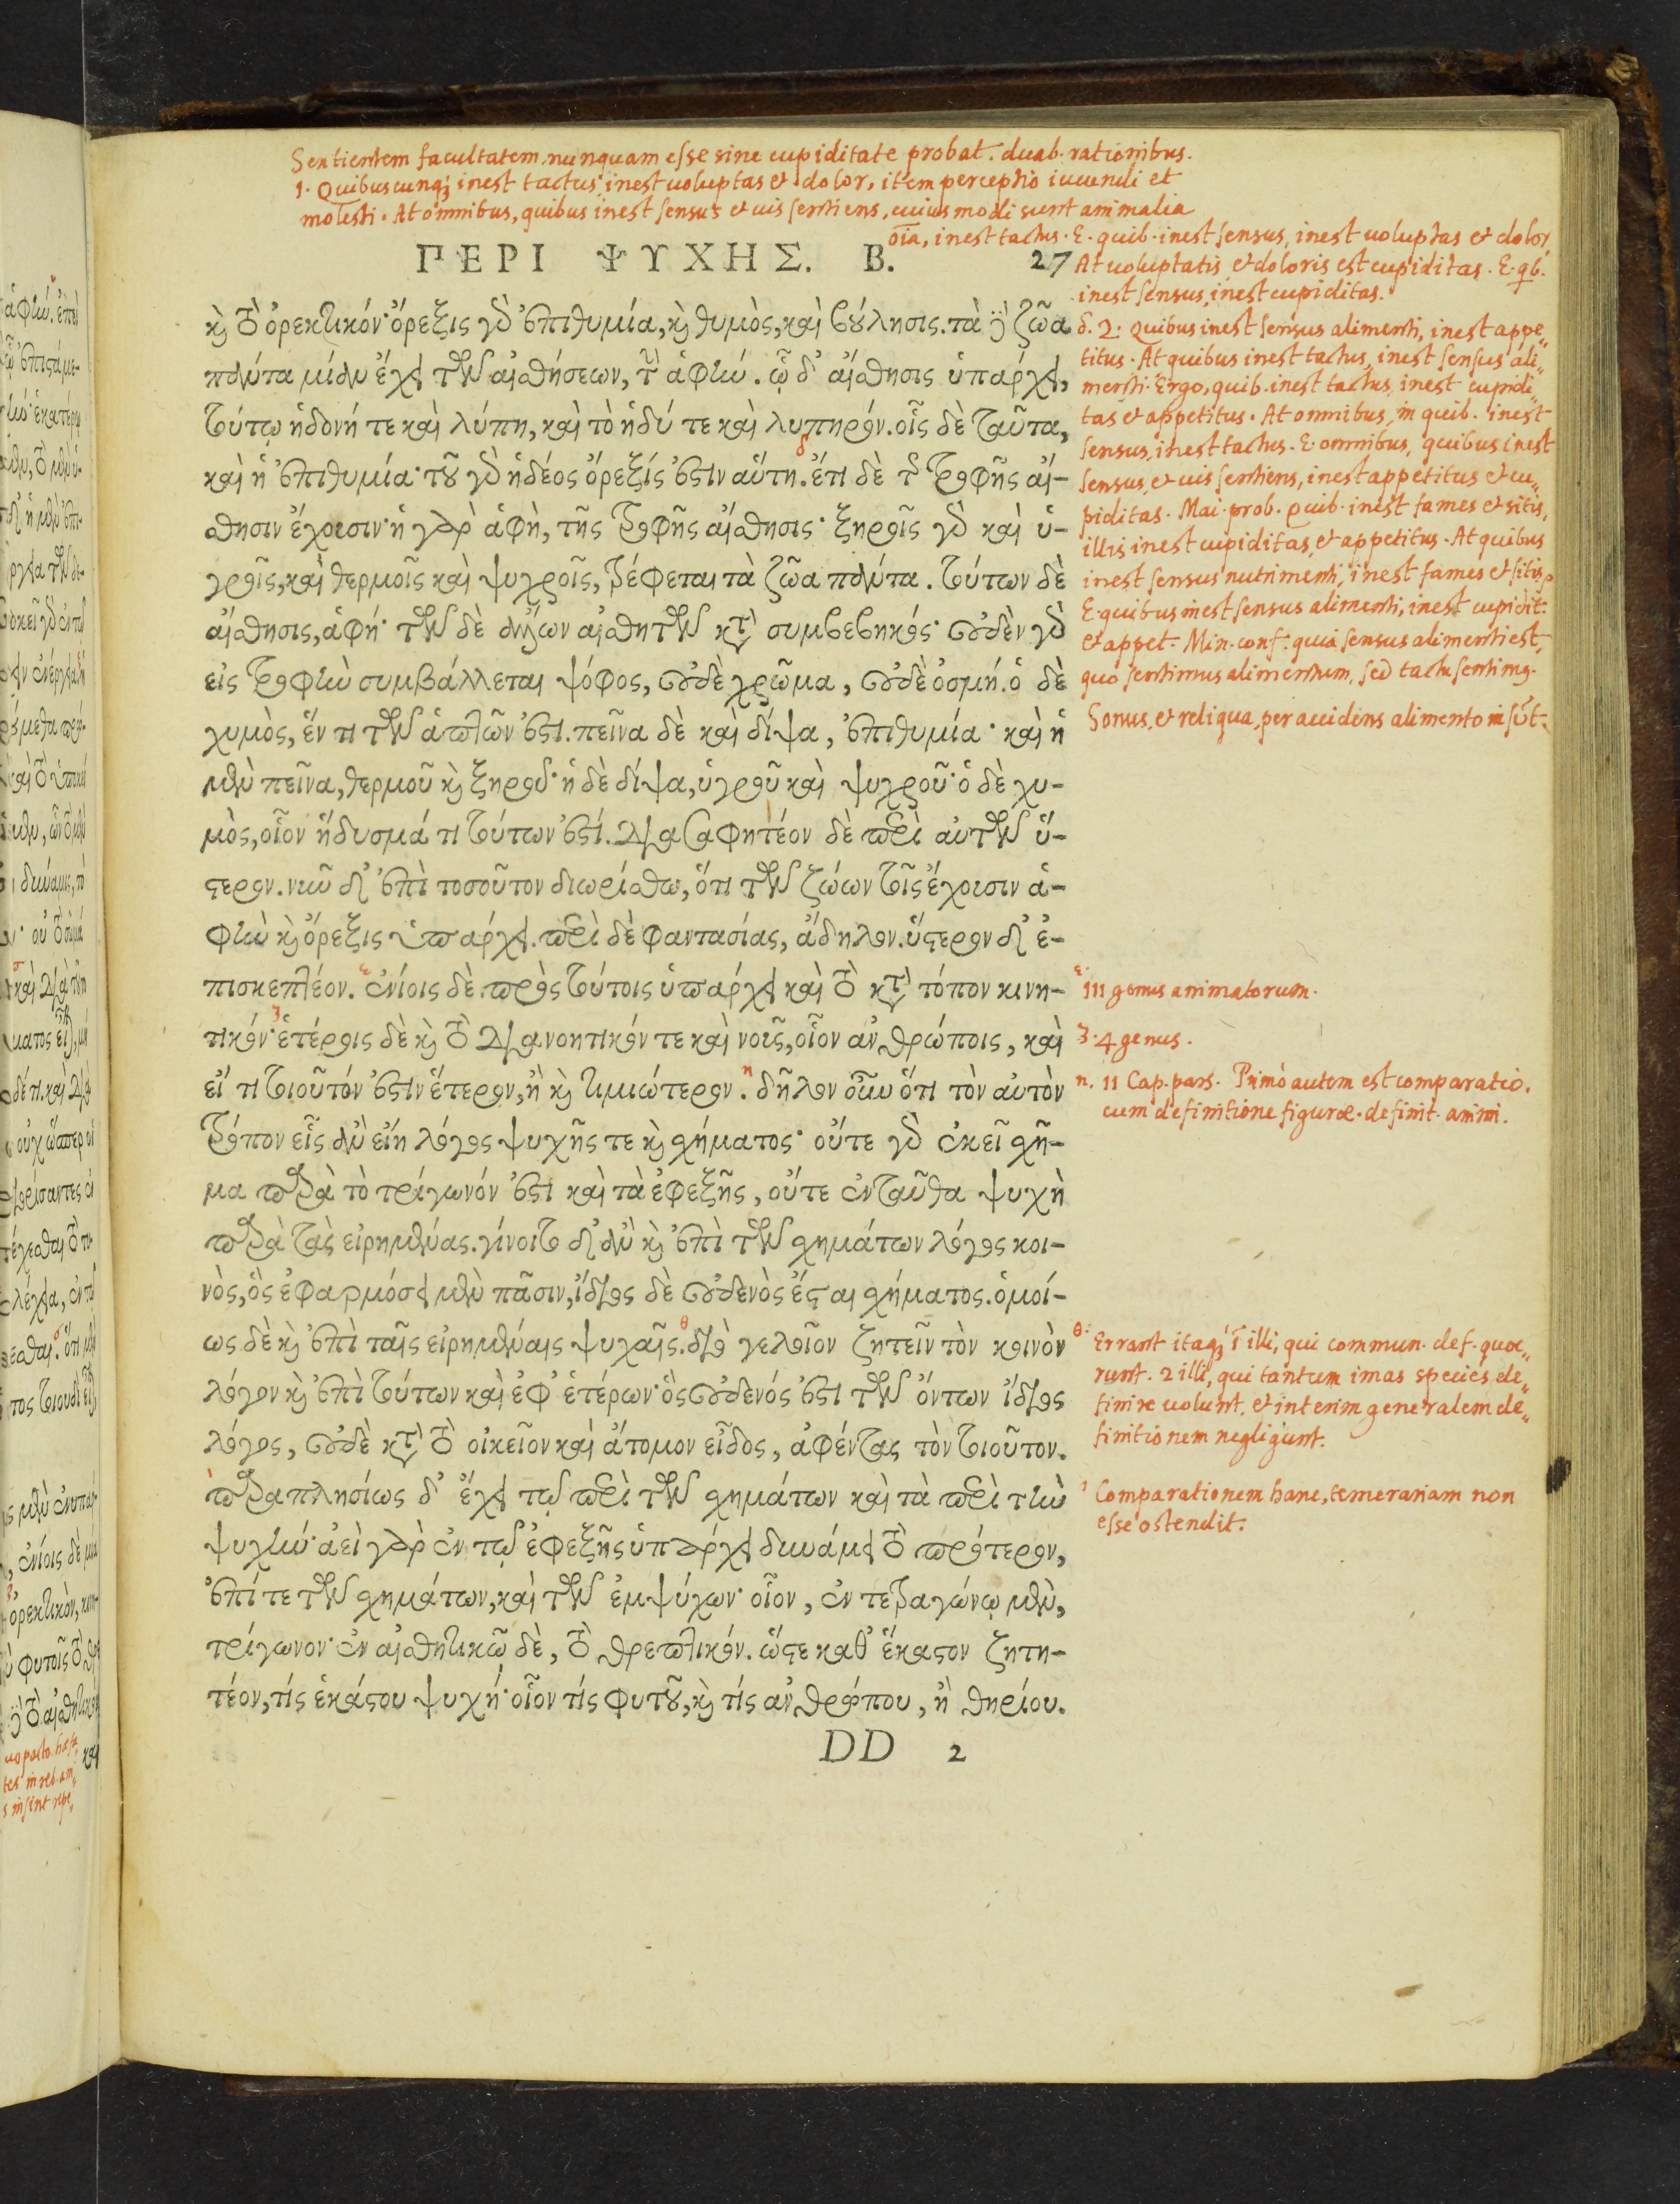 Sentientem facultatem nunquam esse sine cupiditate probat. duab. rationibus.
1. Quibuscunq; inest tactus, inest uoluptas et dolor, item perceptio iucundi et
molesti. At omnibus, quibus inest sensus et uis sentiens, cuiusmodi sunt animalia
oīa, inest tactus. E. quib. inest sensus, inest uoluptas et dolor,
At uoluptatis et doloris est cupiditas. E. qb.
inest sensus, inest cupiditas.
ΠΕΡΙ ΨΥΧΗΣ. Β. 27
καὶ τὸ ὀρεκτικόν· ὄρεξις γὰρ ἐπιθυμία, καὶ θυμὸς, καὶ βούλησις. τὰ δὲ ζῶα
πάντα μίαν ἔχει τῶν αἰσθήσεων, τὴν ἁφήν. ᾧ δ' αἴσθησις ὑπάρχει,
τούτῳ ἡδονή τε καὶ λύπη, καὶ τὸ ἡδύ τε καὶ λυπηρόν. οἷς δὲ ταῦτα,
καὶ ἡ ἐπιθυμία· τοῦ γὰρ ἡδέος ὄρεξίς ἐστιν αὕτη. ἔτι δὲ τῆς τροφῆς αἴ-
σθησιν ἔχουσιν· ἡ γὰρ ἁφὴ, τῆς τροφῆς αἴσθησις· ξηροῖς γὰρ καὶ ὑ-
γροῖς, καὶ θερμοῖς καὶ ψυχροῖς, τρέφεται τὰ ζῶα πάντα. τούτων δὲ
αἴσθησις, ἁφή· τῶν δὲ ἄλλων αἰσθητῶν κατὰ συμβεβηκός· οὐδὲν γὰρ
εἰς τροφὴν συμβάλλεται ψόφος, οὐδὲ χρῶμα, οὐδὲ ὀσμή. ὁ δὲ
χυμὸς, ἕν τι τῶν ἁπτῶν ἐστι. πεῖνα δὲ καὶ δίψα, ἐπιθυμία· καὶ ἡ
μὲν πεῖνα, θερμοῦ καὶ ξηροῦ· ἡ δὲ δίψα, ὑγροῦ καὶ ψυχροῦ· ὁ δὲ χυ-
μὸς, οἷον ἥδυσμά τι τούτων ἐστί. διασαφητέον δὲ περὶ αὐτῶν ὕ-
στερον. νῦν δ' ἐπὶ τοσοῦτον διωρίσθω, ὅτι τῶν ζώων τοῖς ἔχουσιν ἁ-
φὴν καὶ ὄρεξις ὑπάρχει. περὶ δὲ φαντασίας, ἄδηλον. ὕστερον δ' ἐ-
πισκεπτέον. ἐνίοις δὲ πρὸς τούτοις ὑπάρχει καὶ τὸ κατὰ τόπον κινη-
τικόν· ἑτέροις δὲ καὶ τὸ διανοητικόν τε καὶ νοῦς, οἷον ἀνθρώποις, καὶ
εἴ τι τοιοῦτόν ἐστιν ἕτερον, ἢ καὶ τιμιώτερον. δῆλον οὖν ὅτι τὸν αὐτὸν
τρόπον εἷς ἂν εἴη λόγος ψυχῆς τε καὶ σχήματος· οὔτε γὰρ ἐκεῖ σχῆ-
μα παρὰ τὸ τρίγωνόν ἐστι καὶ τὰ ἐφεξῆς, οὔτε ἐνταῦθα ψυχὴ
παρὰ τὰς εἰρημένας. γίνοιτο δ' ἂν καὶ ἐπὶ τῶν σχημάτων λόγος κοι-
νὸς, ὃς ἐφαρμόσει μὲν πᾶσιν, ἴδιος δὲ οὐδενὸς ἔσται σχήματος. ὁμοί-
ως δὲ καὶ ἐπὶ ταῖς εἰρημέναις ψυχαῖς. διὸ γελοῖον ζητεῖν τὸν κοινὸν
λόγον καὶ ἐπὶ τούτων καὶ ἐφ' ἑτέρων· ὃς οὐδενός ἐστι τῶν ὄντων ἴδιος
λόγος, οὐδὲ κατὰ τὸ οἰκεῖον καὶ ἄτομον εἶδος, ἀφέντας τὸν τοιοῦτον.
παραπλησίως δ' ἔχει τῷ περὶ τῶν σχημάτων καὶ τὰ περὶ τὴν
ψυχήν· ἀεὶ γὰρ ἐν τῷ ἐφεξῆς ὑπάρχει δυνάμει τὸ πρότερον,
ἐπί τε τῶν σχημάτων, καὶ τῶν ἐμψύχων· οἷον, ἐν τετραγώνῳ μὲν,
τρίγωνον· ἐν αἰσθητικῷ δὲ, τὸ θρεπτικόν. ὥστε καθ' ἕκαστον ζητη-
τέον, τίς ἑκάστου ψυχή· οἷον τίς φυτοῦ, καὶ τίς ἀνθρώπου, ἢ θηρίου.
DD 2
δ. 2. Quibus inest sensus alimenti, inest appe„
titus. At quibus inest tactus, inest sensus ali„
menti. Ergo, quib. inest tactus, inest cupidi„
tas et appetitus. At omnibus, in quib. inest
sensus, inest tactus. E. omnibus, quibus inest
sensus, et uis sentiens, inest appetitus et cu„
piditas. Mai. prob. Quib. inest fames et sitis,
illis inest cupiditas, et appetitus. At quibus
inest sensus nutrimenti, inest fames et sitis,
E. quibus inest sensus alimenti, inest cupidit.
et appet. Min. conf. quia sensus alimenti est,
quo sentimus alimentum, sed tactu sentimg.
Sonus, et reliqua, per accidens alimento insūt.
ε. III genus animatorum.
ζ. 4 genus.
η. II Cap. pars. Primò autem est comparatio.
cum definitione figuræ. definit. animi.
θ. Errant itaq; 1 illi, qui commun. def. quæ„
runt. 2 illi, qui tantum imas species de„
finire uolunt, et interim generalem de„
finitionem negligunt.
ι Comparationem hanc, temerariam non
esse ostendit.